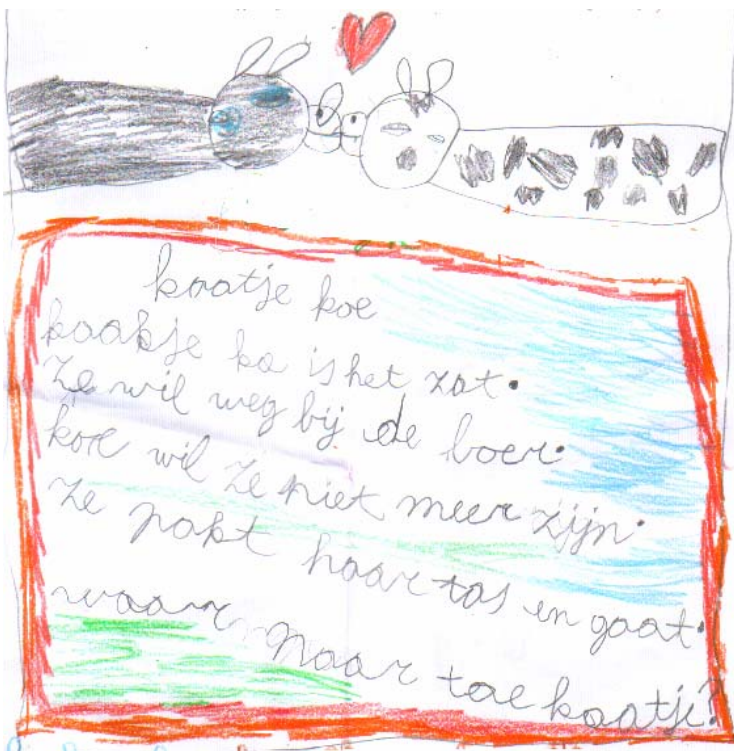 kaatje koe
kaakje ko is het zat.
ze wil weg bij de boer.
koe wil ze niet meer zijn.
ze pakt haar tas en gaat.
waar naar toe kaatje?